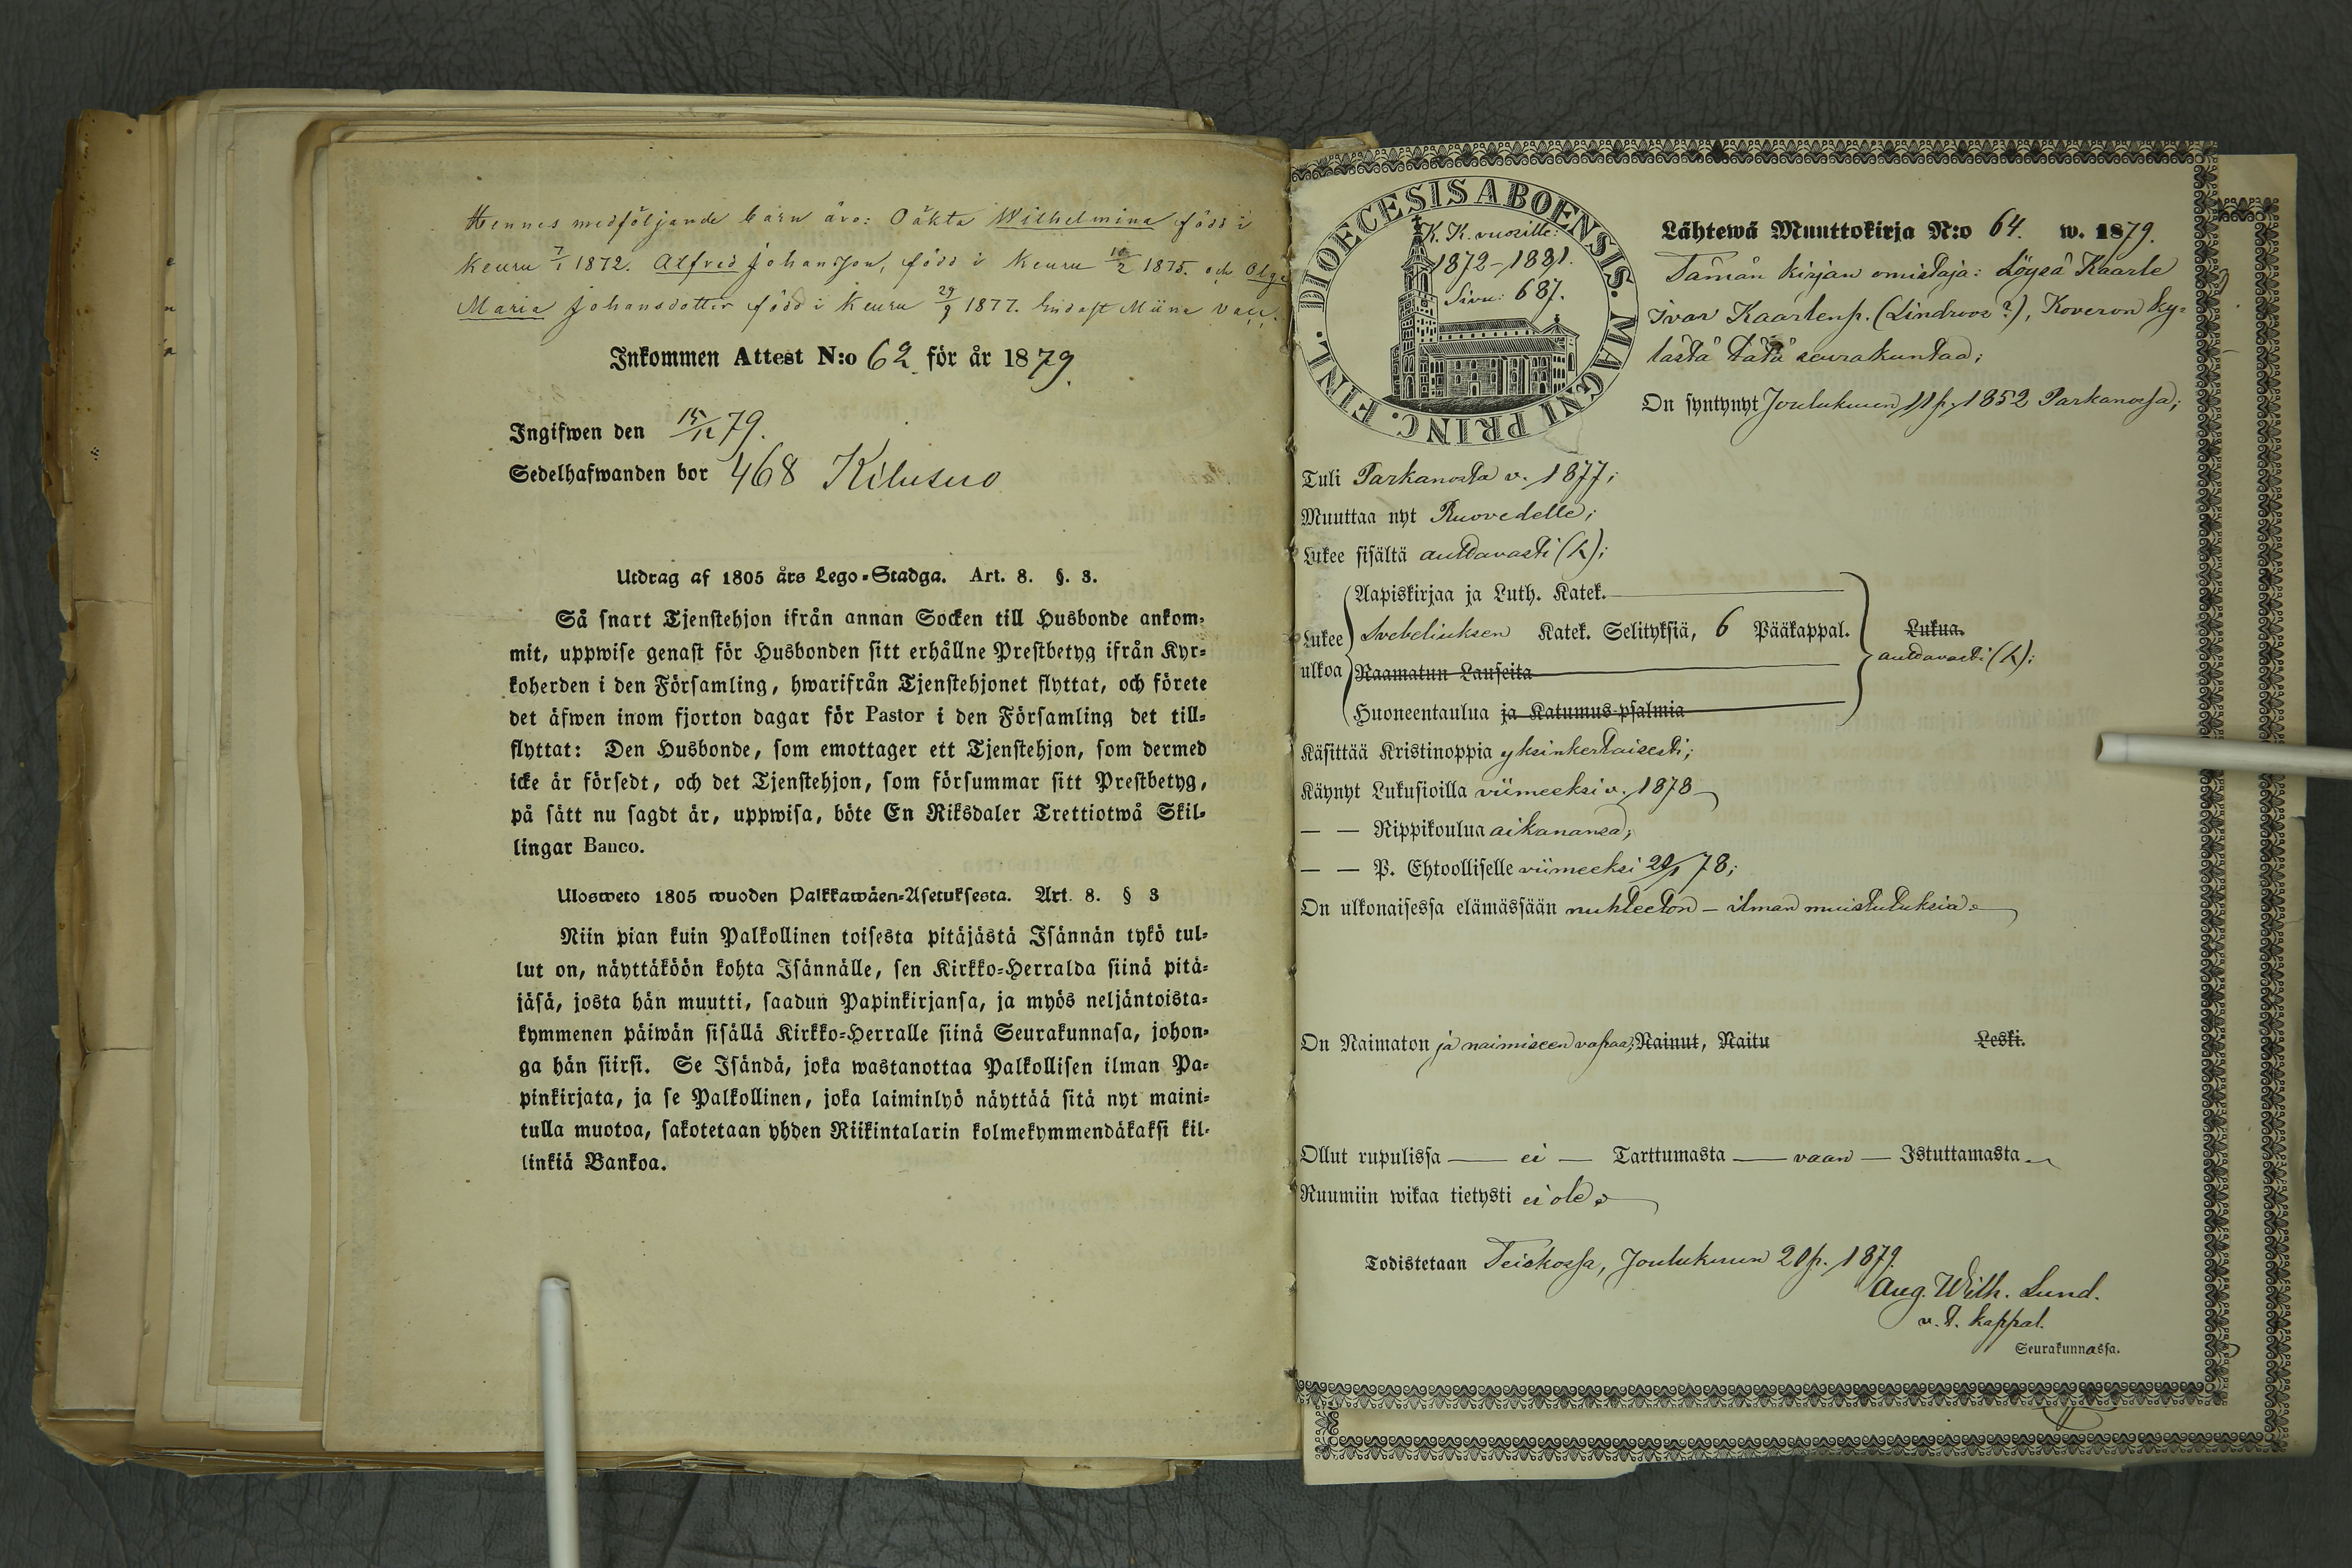 Hennes medföljande barn äro: Oäkta Wilhelmina född i
Keuru 7/1 1872. Alfred Johansson, född i Keuru 10/2 1875. och Olga
Maria Johansdotter född i Keuru 29/9 1877. Endast Miina vacc.
Inkommen Attest N:o 62. för år 1879.
Ingifwen den 15/12 79.
Sedelhafwanden bor 468 Kilusuo
Utdrag af 1805 års Lego-Stadga. Art. 8. §. 3.
Så snart Tjenstehjon ifrån annan Socken till Husbonde ankom-
mit, uppwise genast för Husbonden sitt erhållne Prestbetyg ifrån Kyr-
koherden i den Församling, hwarifrån Tjenstehjonet flyttat, och förete
det äfwen inom fjorton dagar för Pastor i den Församling det till-
flyttat: Den Husbonde, som emottager ett Tjenstehjon, som dermed
icke är försedt, och det Tjenstehjon, som försummar sitt Prestbetyg,
på sätt nu sagdt är, uppwisa, böte En Riksdaler Trettiotwå Skil-
lingar Banco.
Ulosweto 1805 wuoden Palkkawäen-Asetuksesta. Art. 8. § 3
Niin pian kuin Palkollinen toisesta pitäjästä Isännän tykö tul-
lut on, näyttäköön kohta Isännälle, sen Kirkko-Herralda siinä pitä-
jäsä, josta hän muutti, saadun Papinkirjansa, ja myös neljäntoista-
kymmenen päiwän sisällä Kirkko-Herralle siinä Seurakunnasa, johon-
ga hän siirsi. Se Isändä, joka wastanottaa Palkollisen ilman Pa-
pinkirjata, ja se Palkollinen, joka laiminlyö näyttää sitä nyt maini-
tulla muotoa, sakotetaan yhden Riikintalarin kolmekymmendäkaksi kil-
linkiä Bankoa.
DIOECESIS ABOENSIS. MAGNI PRINC. FINL.
K. K. vuosille:
1872-1881.
Sivu: 687.
Lähtewä Muuttokirja N:o 64. w. 1879.
Tämän kirjan omistaja: Löysä Kaarle
Ivar Kaarlenp. (Lindroos?), Koveron ky-
lästä tätä seurakuntaa;
On syntynyt Joulukuun 11 p. 1852 Parkanossa;
Tuli Parkanosta v. 1877;
Muuttaa nyt Ruovedelle;
Lukee sisältä auttavasti (h);
Lukee ulkoa
Aapiskirjaa ja Luth. Katek.
Svebeliuksen Katek. Selityksiä, 6 Pääkappal.
Raamatun Lauseita
Huoneentaulua ja Katumus-psalmia
Lukua.
auttavasti (h);
Käsittää Kristinoppia yksinkertaisesti;
Käynyt Lukusioilla viimeeksi v. 1878
— — Rippikoulua aikanansa;
— — P. Ehtoolliselle viimeeksi 20/1 78;
On ulkonaisessa elämässään nuhteeton - ilman muistutuksia.
On Naimaton ja naimiseen vapaa; Nainut, Naitu Leski.
Ollut rupulissa — ei — Tarttumasta — vaan — Istuttamasta
Ruumiin wikaa tietysti ei ole.
Todistetaan Teiskossa, Joulukuun 20 p. 1879.
Aug. Wilh. Lund.
v. t. kappal.
Seurakunnassa.